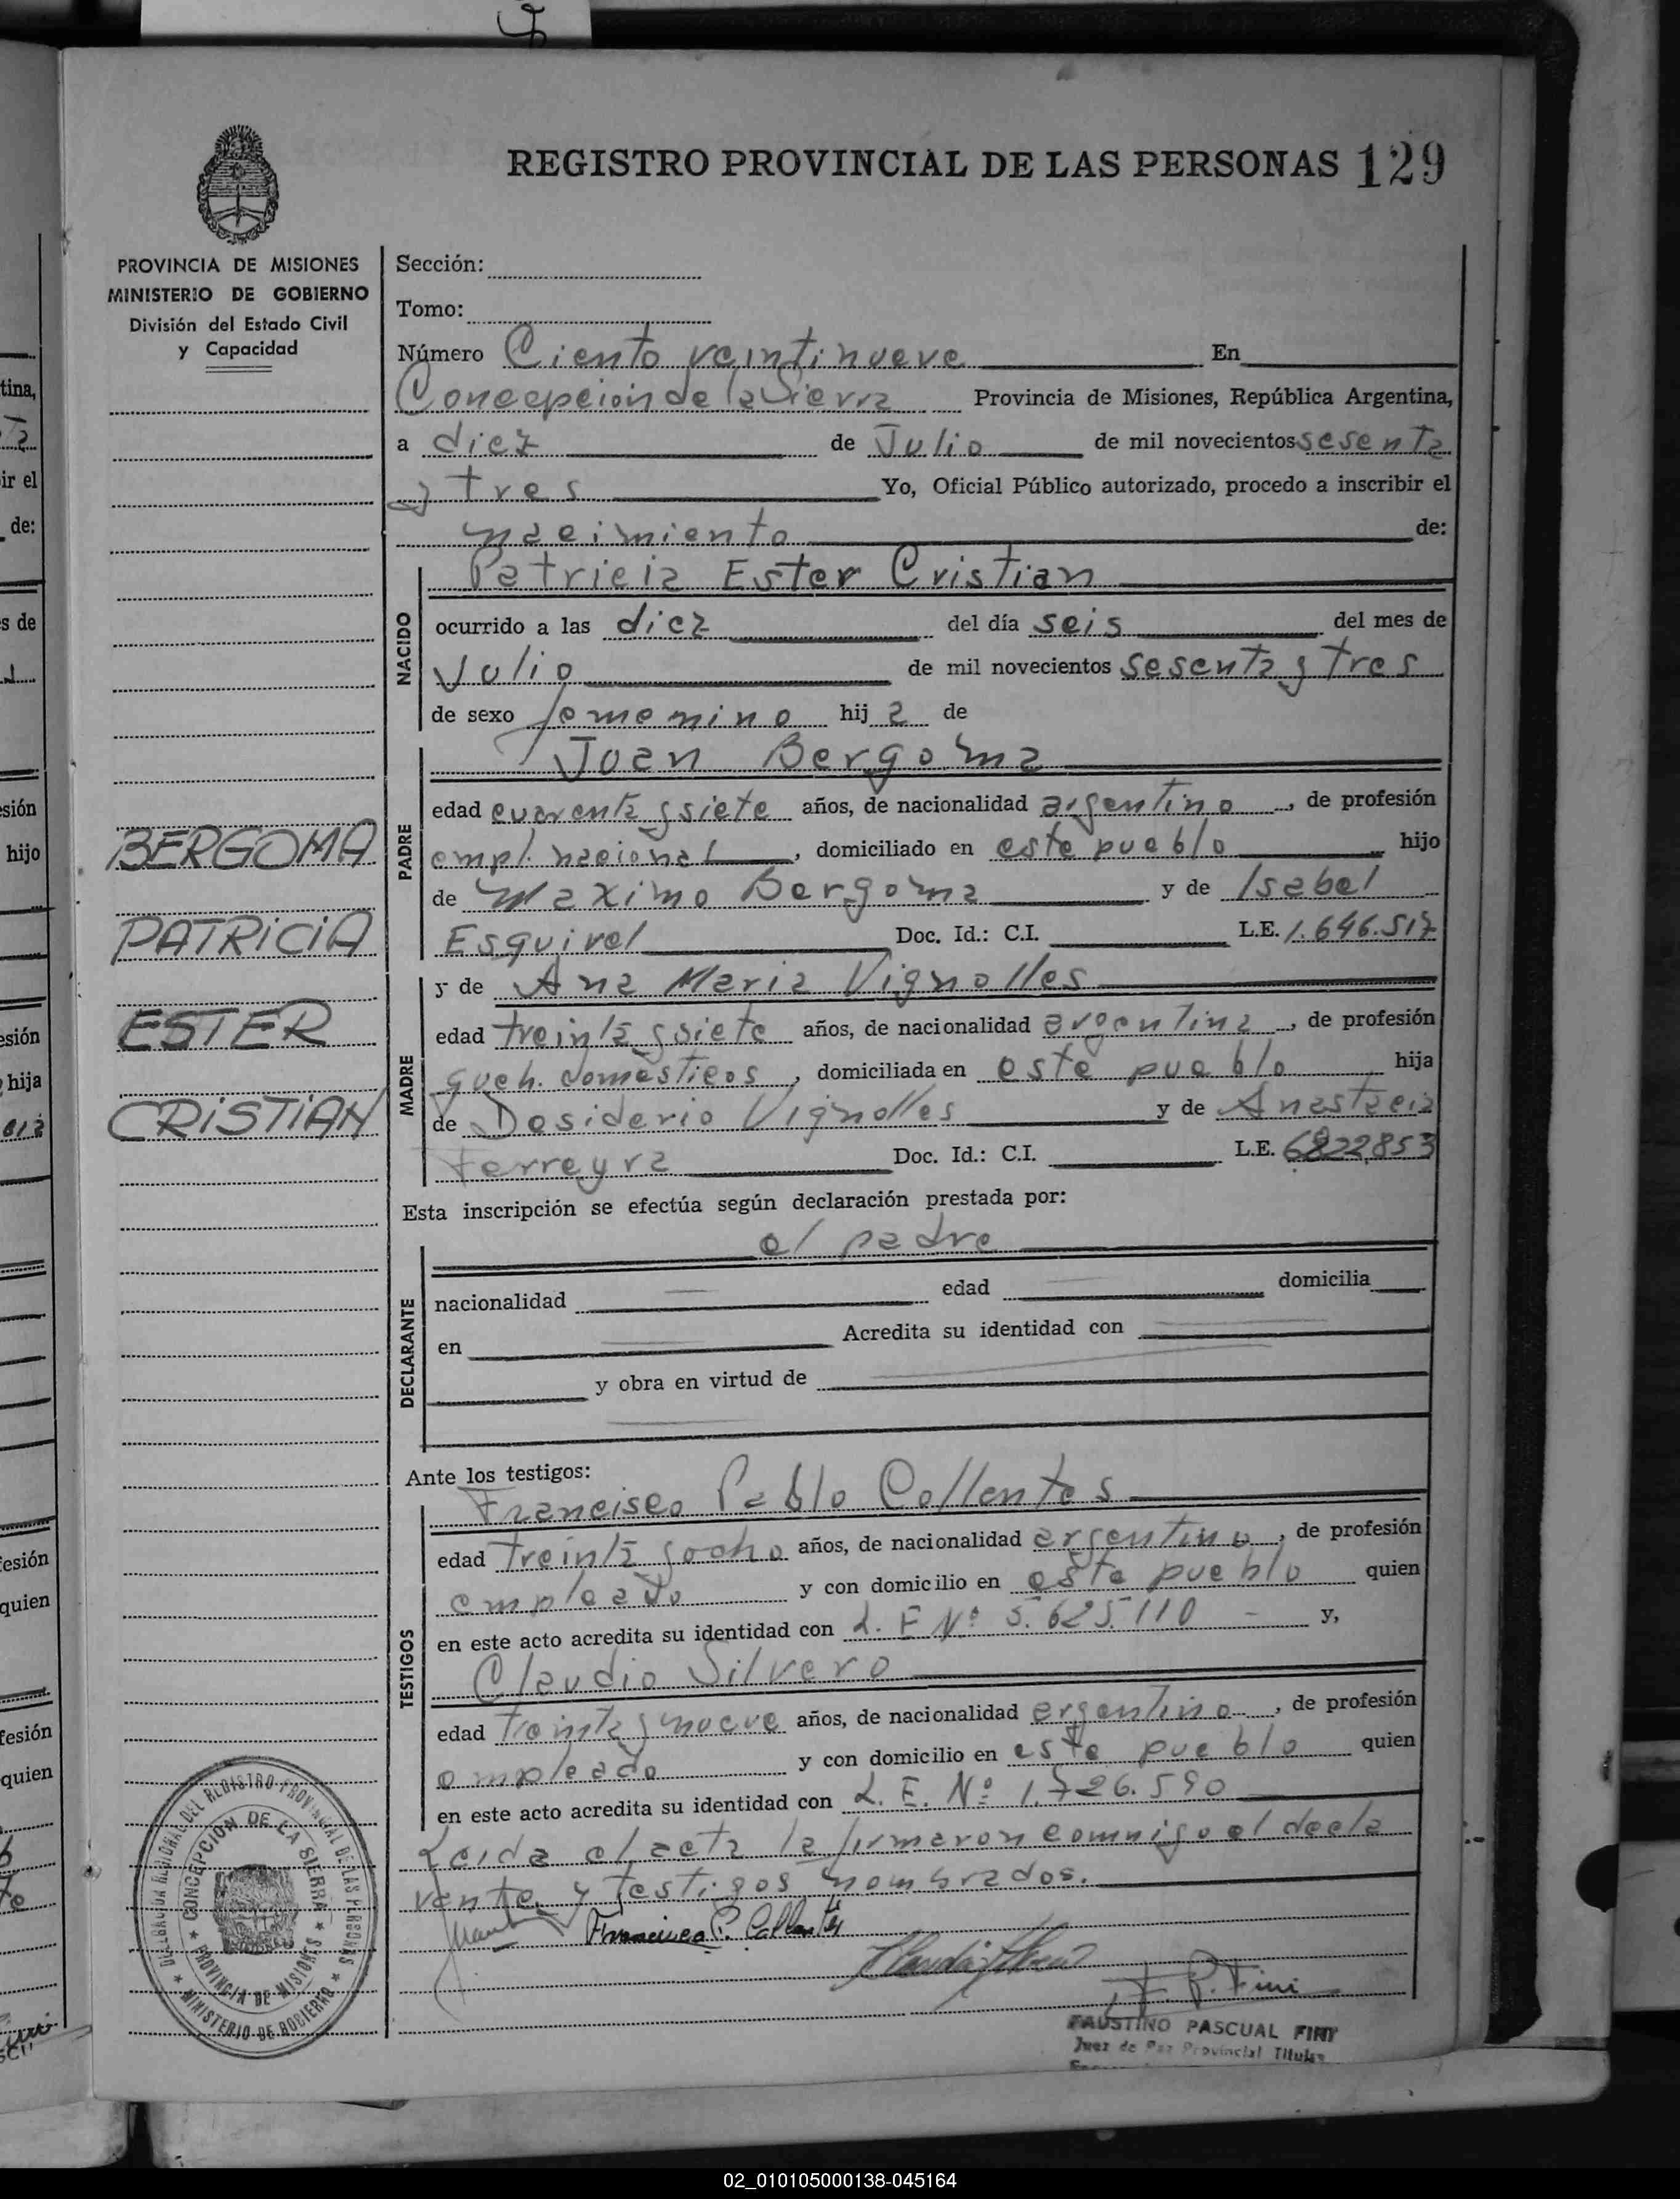 REGISTRO PROVINCIAL DE LAS PERSONAS 129
PROVINCIA DE MISIONES
MINISTERIO DE GOBIERNO
División del Estado Civil
y Capacidad
BERGOMA
PATRICIA
ESTER
CRISTIAN
Sección:
Tomo:
Número Ciento veintinueve En
Concepcion de la Sierra Provincia de Misiones, República Argentina,
a diez de Julio de mil novecientos sesenta
y tres Yo, Oficial Público autorizado, procedo a inscribir el
nacimiento de:
NACIDO
Patricia Ester Cristian
ocurrido a las diez del día seis del mes de
Julio de mil novecientos sesenta y tres
de sexo femenino hij a de
PADRE
Juan Bergoma
edad cuarenta y siete años, de nacionalidad argentino, de profesión
empl. nacional, domiciliado en este pueblo hijo
de Maximo Bergoma y de Isabel
Esquivel Doc. Id.: C.I. L.E. 1.646.517
MADRE
y de Ana Maria Vignolles
edad treinta y siete años, de nacionalidad argentina, de profesión
queh. domésticos, domiciliada en este pueblo hija
de Desiderio Vignolles y de Anastacia
Ferreyra Doc. Id.: C.I. L.E. 6822853
Esta inscripción se efectúa según declaración prestada por:
DECLARANTE
el padre
nacionalidad edad domicilia
en Acredita su identidad con
y obra en virtud de
Ante los testigos:
TESTIGOS
Francisco Pablo Collentes
edad treinta y ocho años, de nacionalidad argentino, de profesión
empleado y con domicilio en este pueblo quien
en este acto acredita su identidad con L. E Nº 5.625.110 - y,
Claudio Silvero
edad treinta y nueve años, de nacionalidad argentino, de profesión
empleado y con domicilio en este pueblo quien
en este acto acredita su identidad con L. E. Nº 1.726.590
Leida el acta la firmaron conmigo el decla
rante y testigos nombrados.
Francisco P. Collentes
F. P. Fini
FAUSTINO PASCUAL FINI
Juez de Paz Provincial Titular
DELEGACION REGIONAL DEL REGISTRO PROVINCIAL DE LAS PERSONAS
CONCEPCION DE LA SIERRA
PROVINCIA DE MISIONES
MINISTERIO DE GOBIERNO
tina,
ir el
de:
s de
sión
hijo
esión
hija
fesión
quien
fesión
quien
02_010105000138-045164